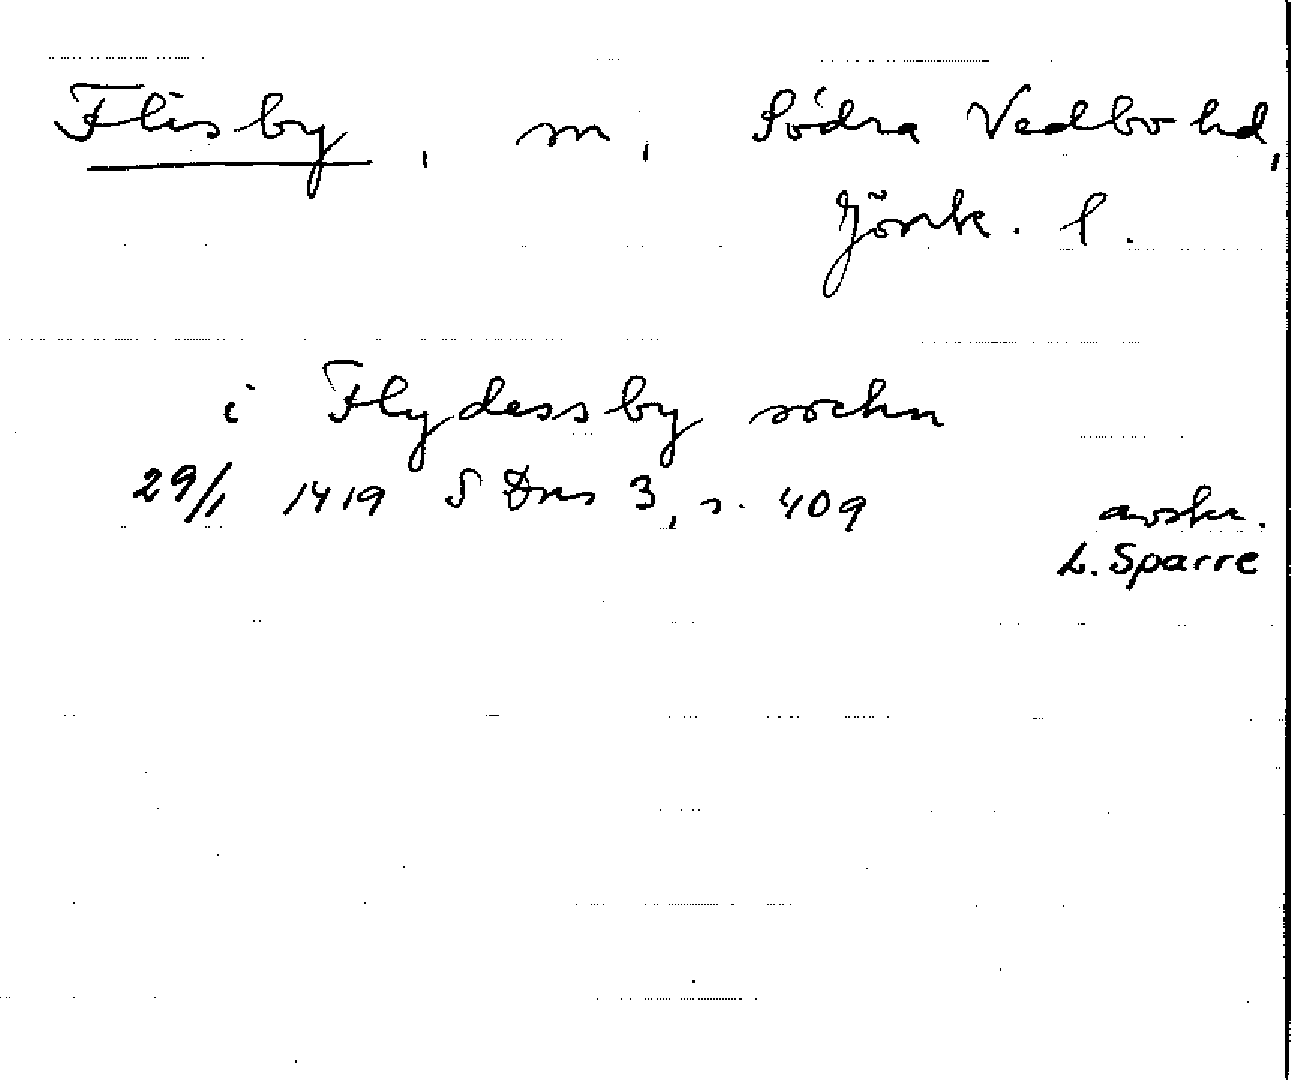 Flisby, sn, Södra Vedbo hd,
Jönk. l.
i Flydessby sochn
29/1 1419 SDns 3, s. 409 avskr.
L. Sparre